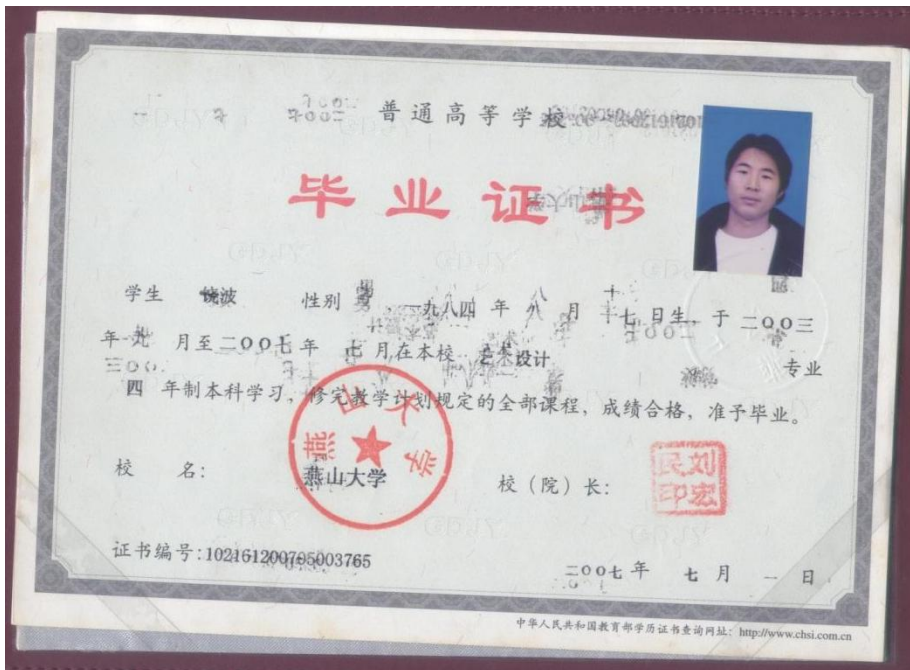 普通高等学校
毕业证书
学生 饶波 性别 男 一九八四 年 八 月 十七 日生，于 二〇〇三
年 九 月至 二〇〇七 年 七 月在本校 艺术设计 专业
四 年制本科学习，修完教学计划规定的全部课程，成绩合格，准予毕业。
燕山大学
校 名： 燕山大学 校（院）长： 刘宏民印
证书编号：102161200705003765 二〇〇七 年 七 月 一 日
中华人民共和国教育部学历证书查询网址：http://www.chsi.com.cn